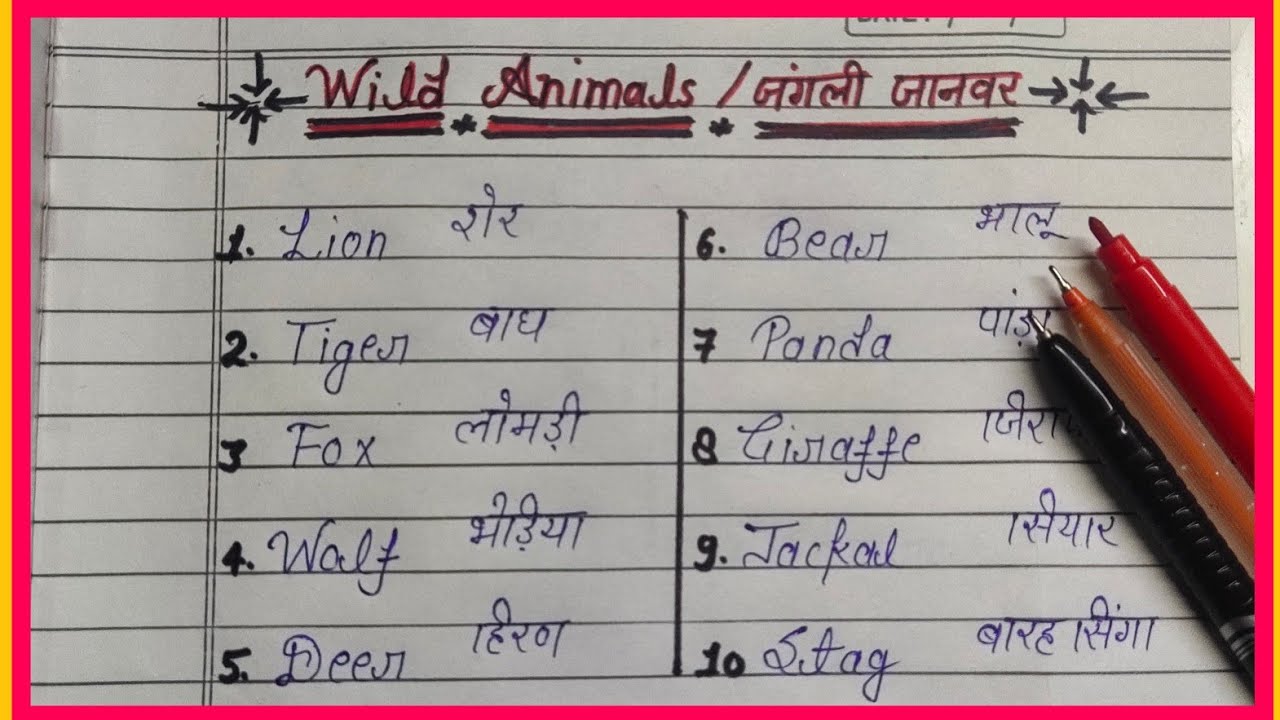 Wild Animals / जंगली जानवर
1. Lion शेर
2. Tiger बाघ
3 Fox लोमड़ी
4. Wolf भेड़िया
5. Deer हिरण
6. Bear भालू
7 Panda
8 Giraffe
9. Jackal सियार
10 Stag बारह सिंगा